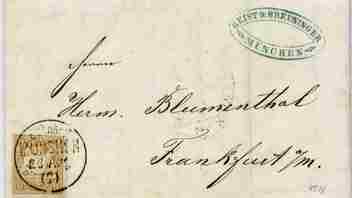 GEIST & BREUNINGER
MÜNCHEN
Herrn
Herm. Blumenthal
Frankfurt /m.
MÜNCHEN